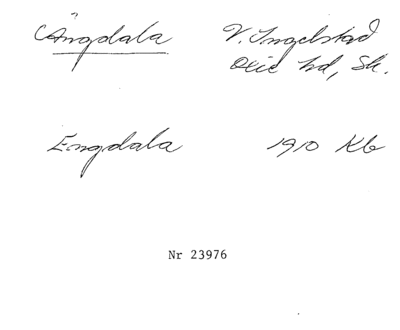 Ängdala V. Ingelstad
Oxie hd, Sk.
Engdala 1910 Kb
Nr 23976